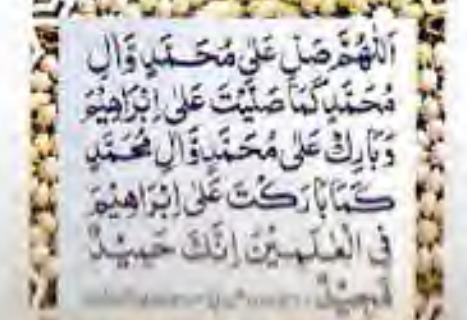 اَللّٰهُمَّ صَلِّ عَلٰى مُحَمَّدٍ وَّاٰلِ
مُحَمَّدٍ كَمَا صَلَّيْتَ عَلٰى اِبْرَاهِيْمَ
وَبَارِكْ عَلٰى مُحَمَّدٍ وَّاٰلِ مُحَمَّدٍ
كَمَا بَارَكْتَ عَلٰى اِبْرَاهِيْمَ
فِى الْعٰلَمِيْنَ اِنَّكَ حَمِيْدٌ
مَّجِيْدٌ